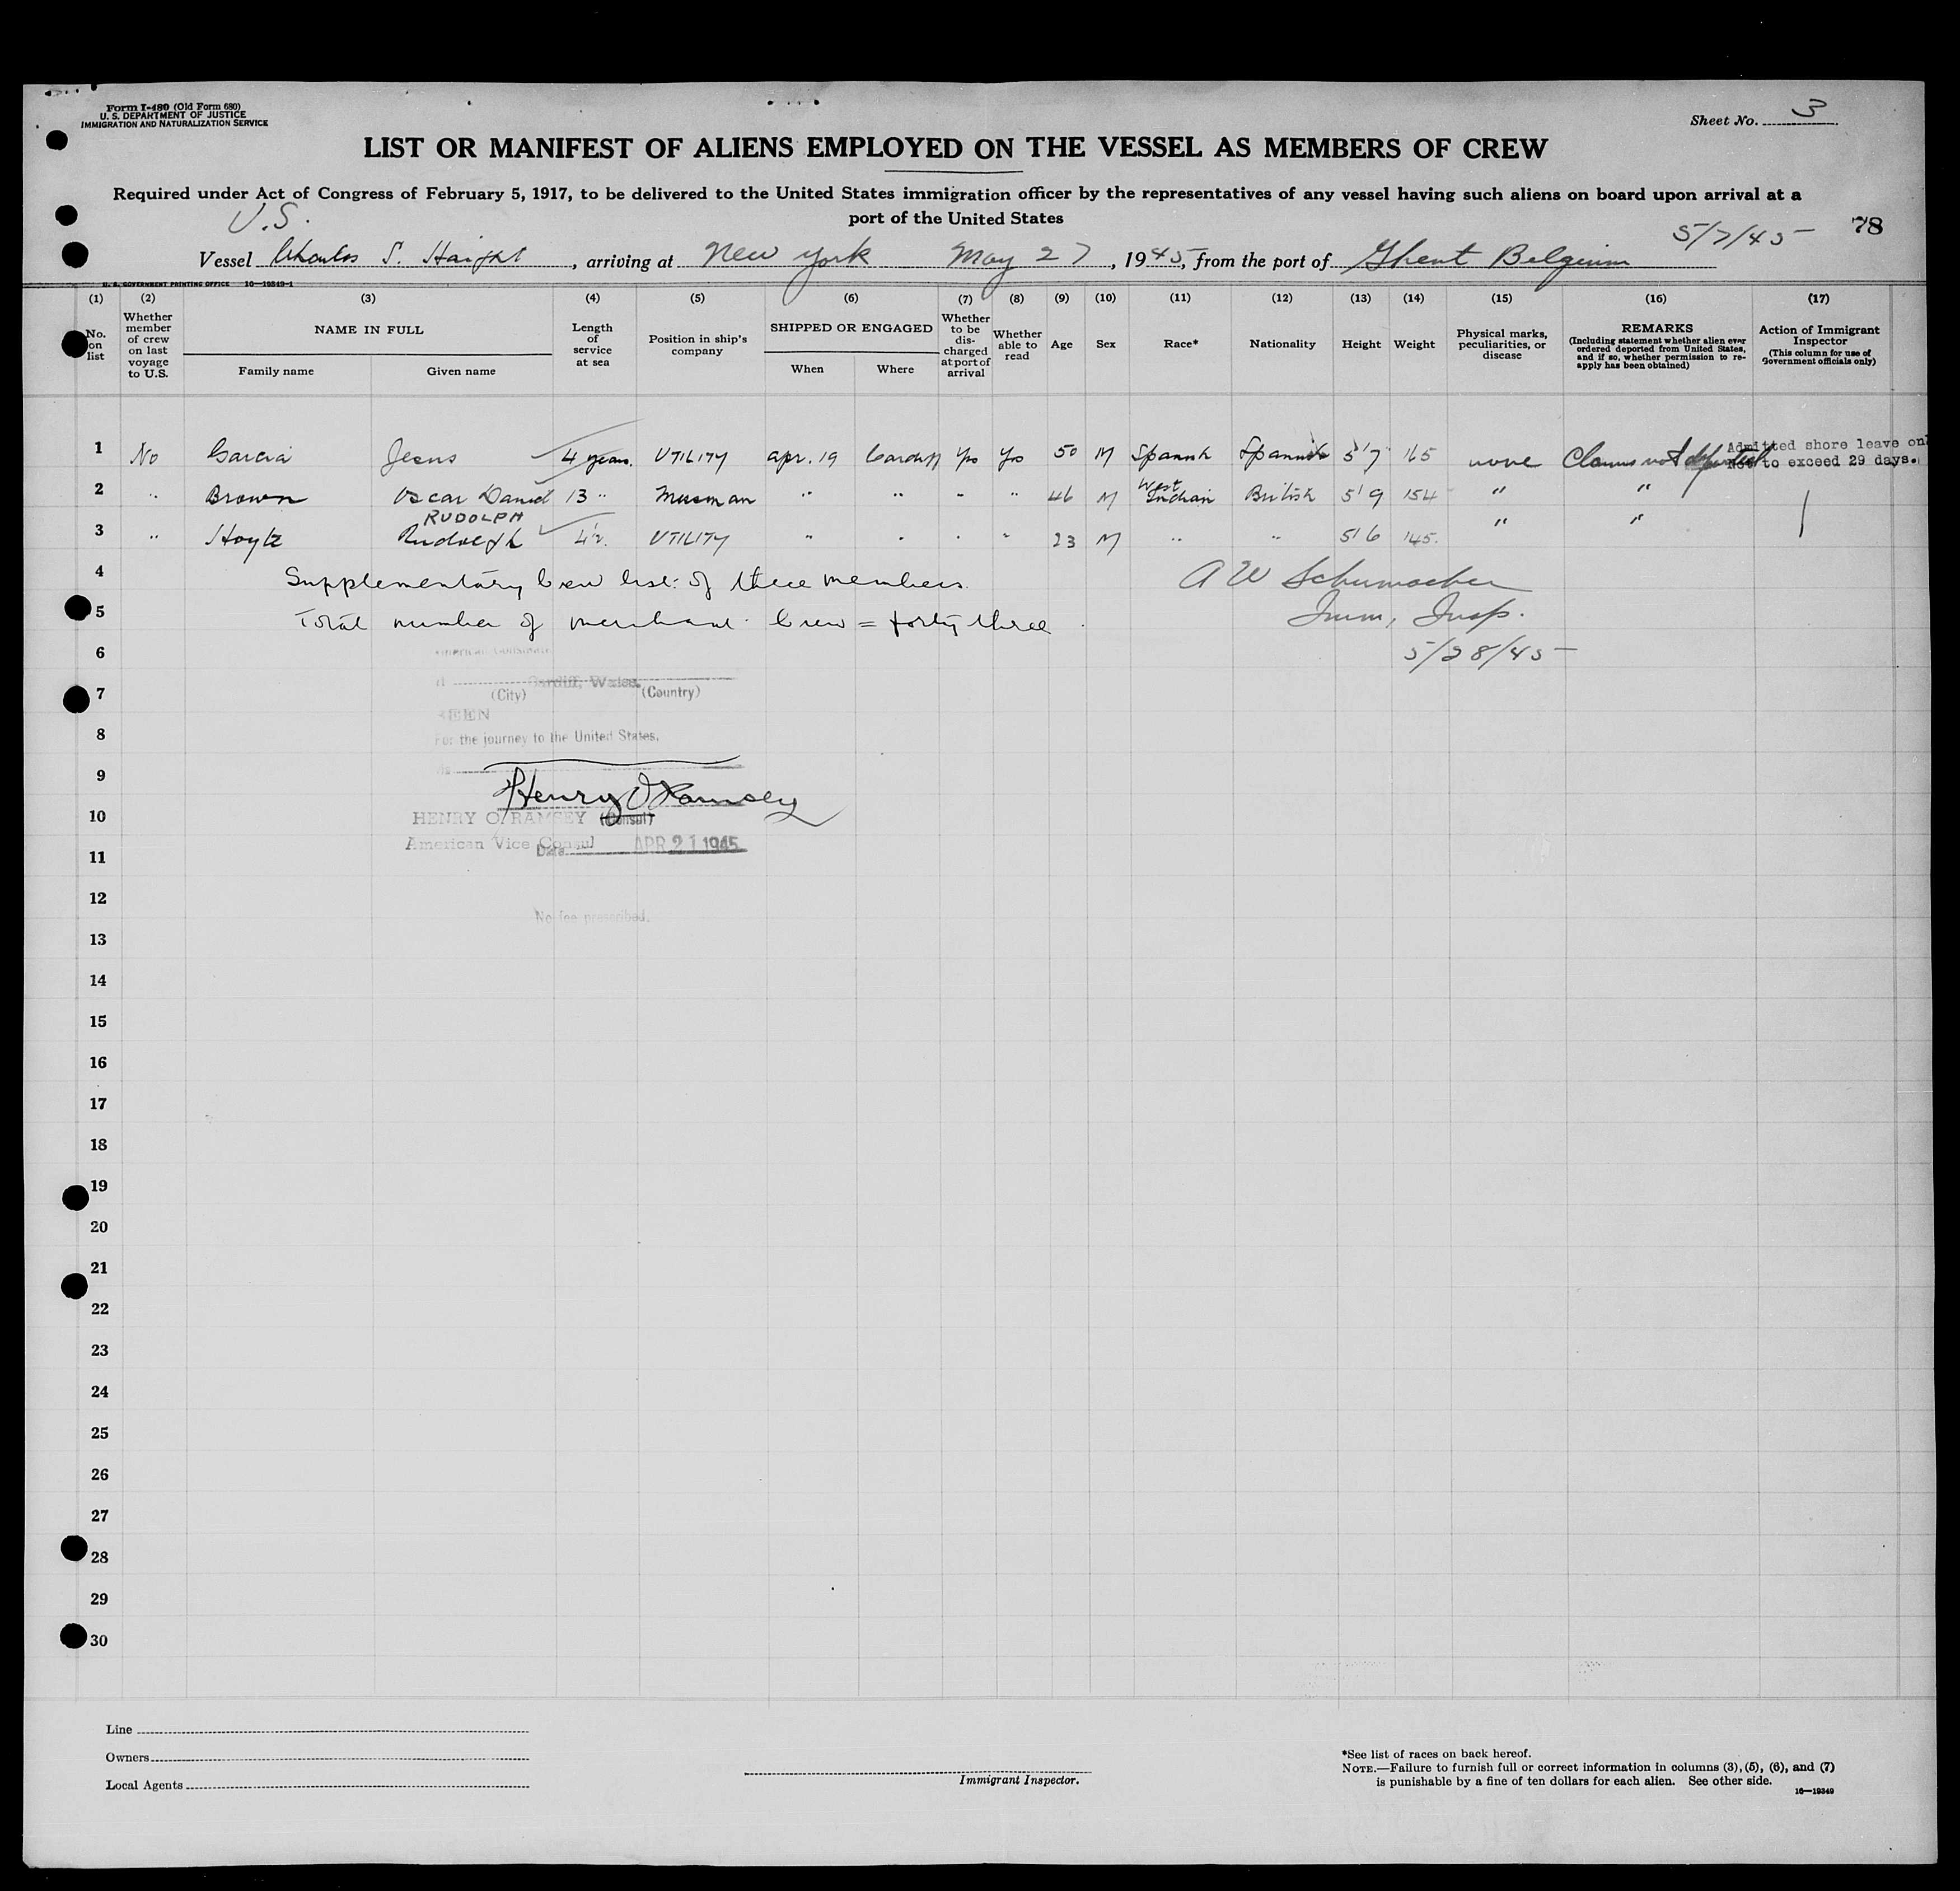 Form I-480 (Old Form 680)
U. S. DEPARTMENT OF JUSTICE
IMMIGRATION AND NATURALIZATION SERVICE
Sheet No. 3
LIST OR MANIFEST OF ALIENS EMPLOYED ON THE VESSEL AS MEMBERS OF CREW
Required under Act of Congress of February 5, 1917, to be delivered to the United States immigration officer by the representatives of any vessel having such aliens on board upon arrival at a
port of the United States
U.S.
5/7/45
78
Vessel Charles S. Haight, arriving at New York May 27, 1945, from the port of Ghent Belgium
U. S. GOVERNMENT PRINTING OFFICE 16—19349-1
(1) (2) (3) (4) (5) (6) (7) (8) (9) (10) (11) (12) (13) (14) (15) (16) (17)
No. on list
Whether member of crew on last voyage to U.S.
NAME IN FULL
Family name Given name
Length of service at sea
Position in ship's company
SHIPPED OR ENGAGED
When Where
Whether to be discharged at port of arrival
Whether able to read
Age
Sex
Race*
Nationality
Height
Weight
Physical marks, peculiarities, or disease
REMARKS
(Including statement whether alien ever ordered deported from United States, and if so, whether permission to re-apply has been obtained)
Action of Immigrant Inspector
(This column for use of Government officials only)
1 No Garcia Jesus 4 years. UTILITY Apr. 19 Cardiff Yes Yes 50 M Spanish Spanish 5'7 165 none Claims not deported
Admitted shore leave on
Not to exceed 29 days.
2 " Brown Oscar Daniel 13 " Messman " " " " 46 M West Indian British 5'9 154 " "
RUDOLPH
3 " Hoyte Rudolph 4½ UTILITY " " " " 23 M " " 5'6 145. " "
4 Supplementary Crew list of three members.
A W Schumacher
5 Total number of merchant Crew = forty three
Imm. Insp.
6
5/28/45
American Consulate
Cardiff, Wales.
7
(City) (Country)
SEEN
8
For the journey to the United States.
9
Henry O Ramsey
10
HENRY O. RAMSEY (Consul)
American Vice Consul
Date APR 21 1945
11
12
No fee prescribed.
13
14
15
16
17
18
19
20
21
22
23
24
25
26
27
28
29
30
Line
Owners
Local Agents
Immigrant Inspector.
*See list of races on back hereof.
NOTE.—Failure to furnish full or correct information in columns (3), (5), (6), and (7)
is punishable by a fine of ten dollars for each alien. See other side.
16—19349